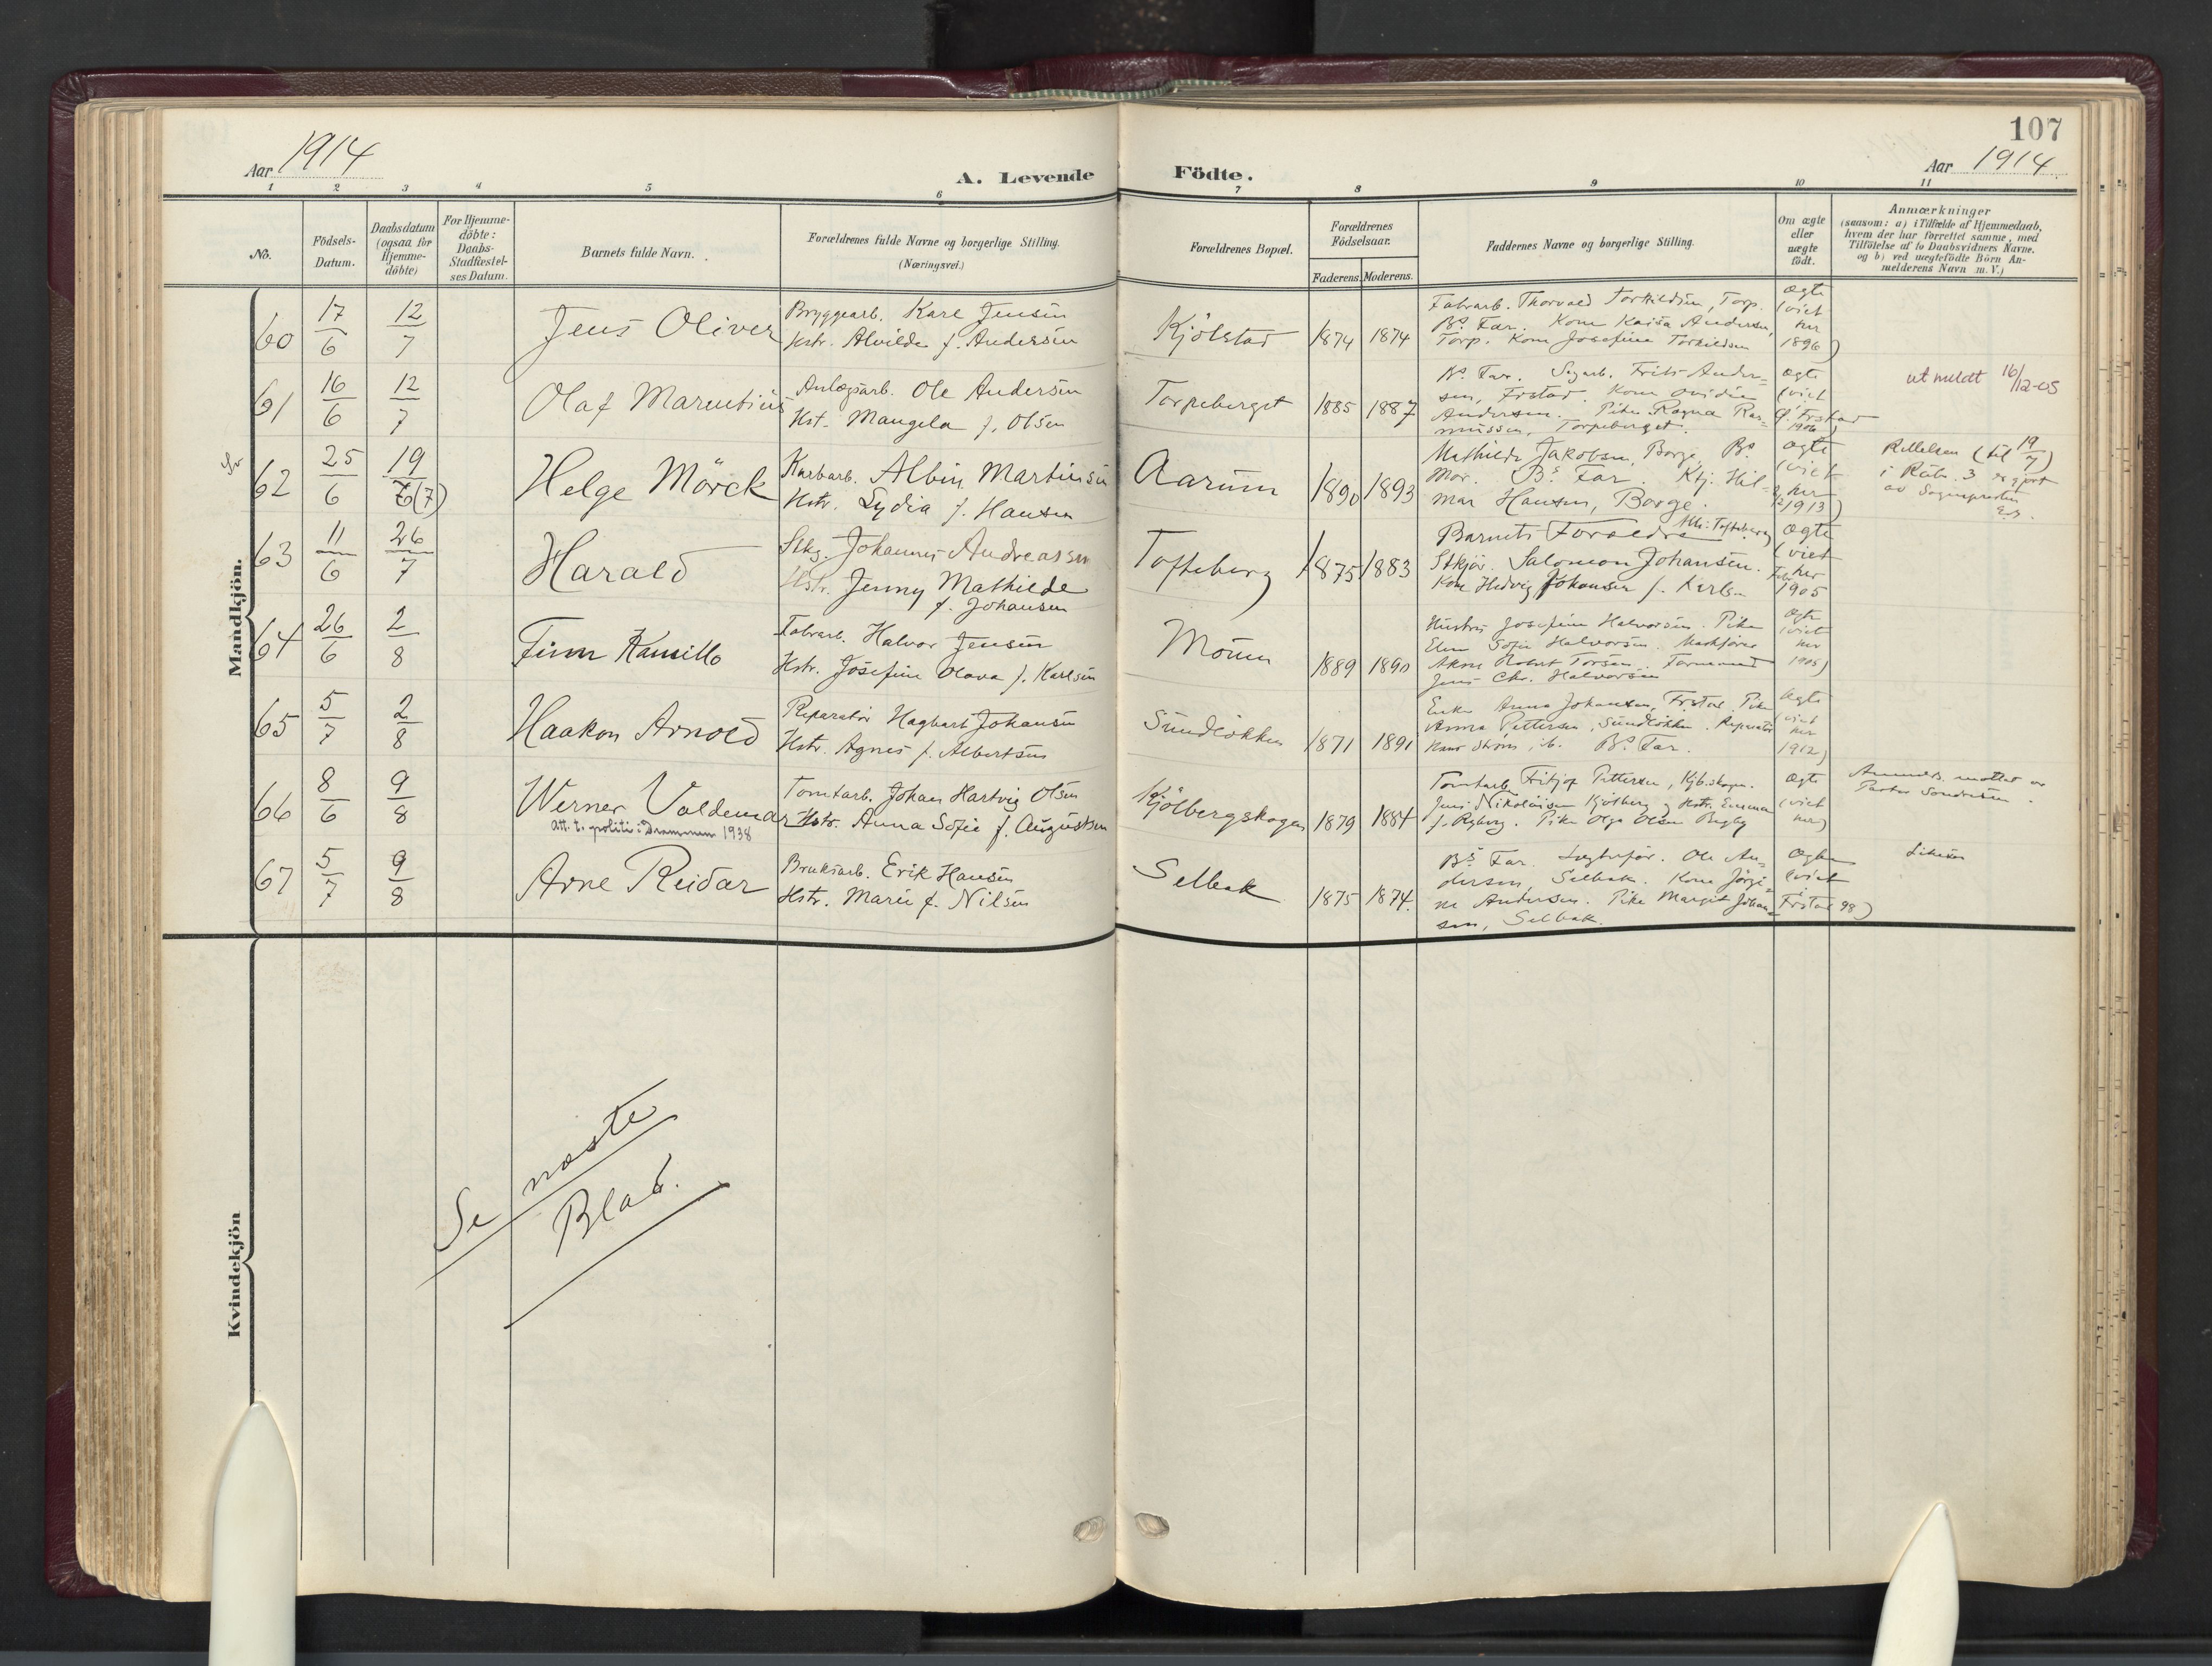 107
Aar 1914
Aar 1914
A. Levende Födte.
1 2 3 4 5 6 7 8 9 10 11
No.
Födsels-
Datum.
Daabsdatum
(ogsaa for
Hjemme-
döbte)
For Hjemme-
döbte:
Daabs-
Stadfæstel-
ses Datum.
Barnets fulde Navn.
Forældrenes fulde Navne og borgerlige Stilling.
(Næringsvei.)
Forældrenes Bopæl.
Forældrenes
Födselsaar.
Faderens. Moderens.
Faddernes Navne og borgerlige Stilling.
Om ægte
eller
uægte
födt.
Anmærkninger
(saasom: a) i Tilfælde af Hjemmedaab,
hvem der har forrettet samme, med
Tilföielse af to Daabsvidners Navne.
og b) ved uægtefödte Börn An-
melderens Navn m. V.)
Mandkjön.
60
17/6
12/7
Jens Oliver
Bryggearb. Karl Jensen
Hstr. Alvilde f. Andersen
Kjölstad
1874 1874
Fabrarb. Thorvald Torkildsen, Torp.
Bs. Far. Kone Kaisa Andersen,
Torp. Kone Josefine Torkildsen
ægte
(viet
her
1896)
61
16/6
12/7
Olaf Marentius
Anlægsarb. Ole Andersen
Hst. Mangela f. Olsen
Torpeberget
1885 1887
Bs. Far. Sagarb. Frits Ander-
sen, Frstad. Kone Ovidia
Andersen. Pike Ragna Ras-
mussen, Torpeberget.
ægte
(viet
Frstad
1906)
utmeldt 16/12-05
62
25/6
19/6(7)
Helge Mörck
Albin Martinsen
Hstr. Lydia f. Hansen
Aarum
1890 1893
Mathilde Jakobsen, Borge, Bs.
Mor. Bs. Far. Ktj. Hil-
mar Hansen, Borge.
ægte
(viet
her
1913)
Rettelsen (til 19/7)
i Rub. 3 er gjort
av Sognepresten
63
11/6
26/7
Harald
Stkj. Johannes Andreassen
Hstr. Jenny Mathilde
f. Johansen
Tofteberg
1875 1883
Barnets Forældre Tofteberg
Stkjör. Salomon Johansen.
Kone Hedvig Johansen f. Karls.
ægte
(viet
her
1905
64
26/6
2/8
Finn Kamillo
Fabrarb. Halvor Jensen
Hstr. Josefine Olava f. Karlsen
Moum
1889 1890
Hustru Josefine Halvorsen. Pike
Sofie Halvorsen.
Robert Torsen.
Jens Chr. Halvorsen
ægte
(viet
her
65
5/7
2/8
Haakon Arnold
Reparatör Hagbart Johansen
Hstr. Agnes f. Albertsen
Sundlökken
1871 1891
Enke Anna Johansen, Frstad. Pike
Anna Pettersen, Sundlökken. Reparatör
Hans Ström, ib. Bs. Far.
ægte
(viet
her
1912)
66
8/6
9/8
Werner Valdemar
att. t. politi i Drammen 1938
Tomtarb. Johan Hartvig Olsen
Hstr. Anna Sofie f. Augustsen
Kjölbergskogen
1879 1884
Tomtarb. Fritjof Pettersen, Kjb.skogn.
Jens Nikolaisen Kjölberg og Hstr. Emma
f. Rygborg. Pike Olga Olsen Begby
ægte
(viet
her)
67
5/7
9/8
Arne Reidar
Bruksarb. Erik Hansen
Hstr. Marie f. Nilsen
Selbak
1875 1874.
Bs. Far. Ole An-
dersen, Selbak. Kone Jörgi-
ne Andersen. Pike Margit Johan-
sen, Selbak.
ægte
(viet
i
Frstad 98)
Kvindekjön
Se næste
Blad.